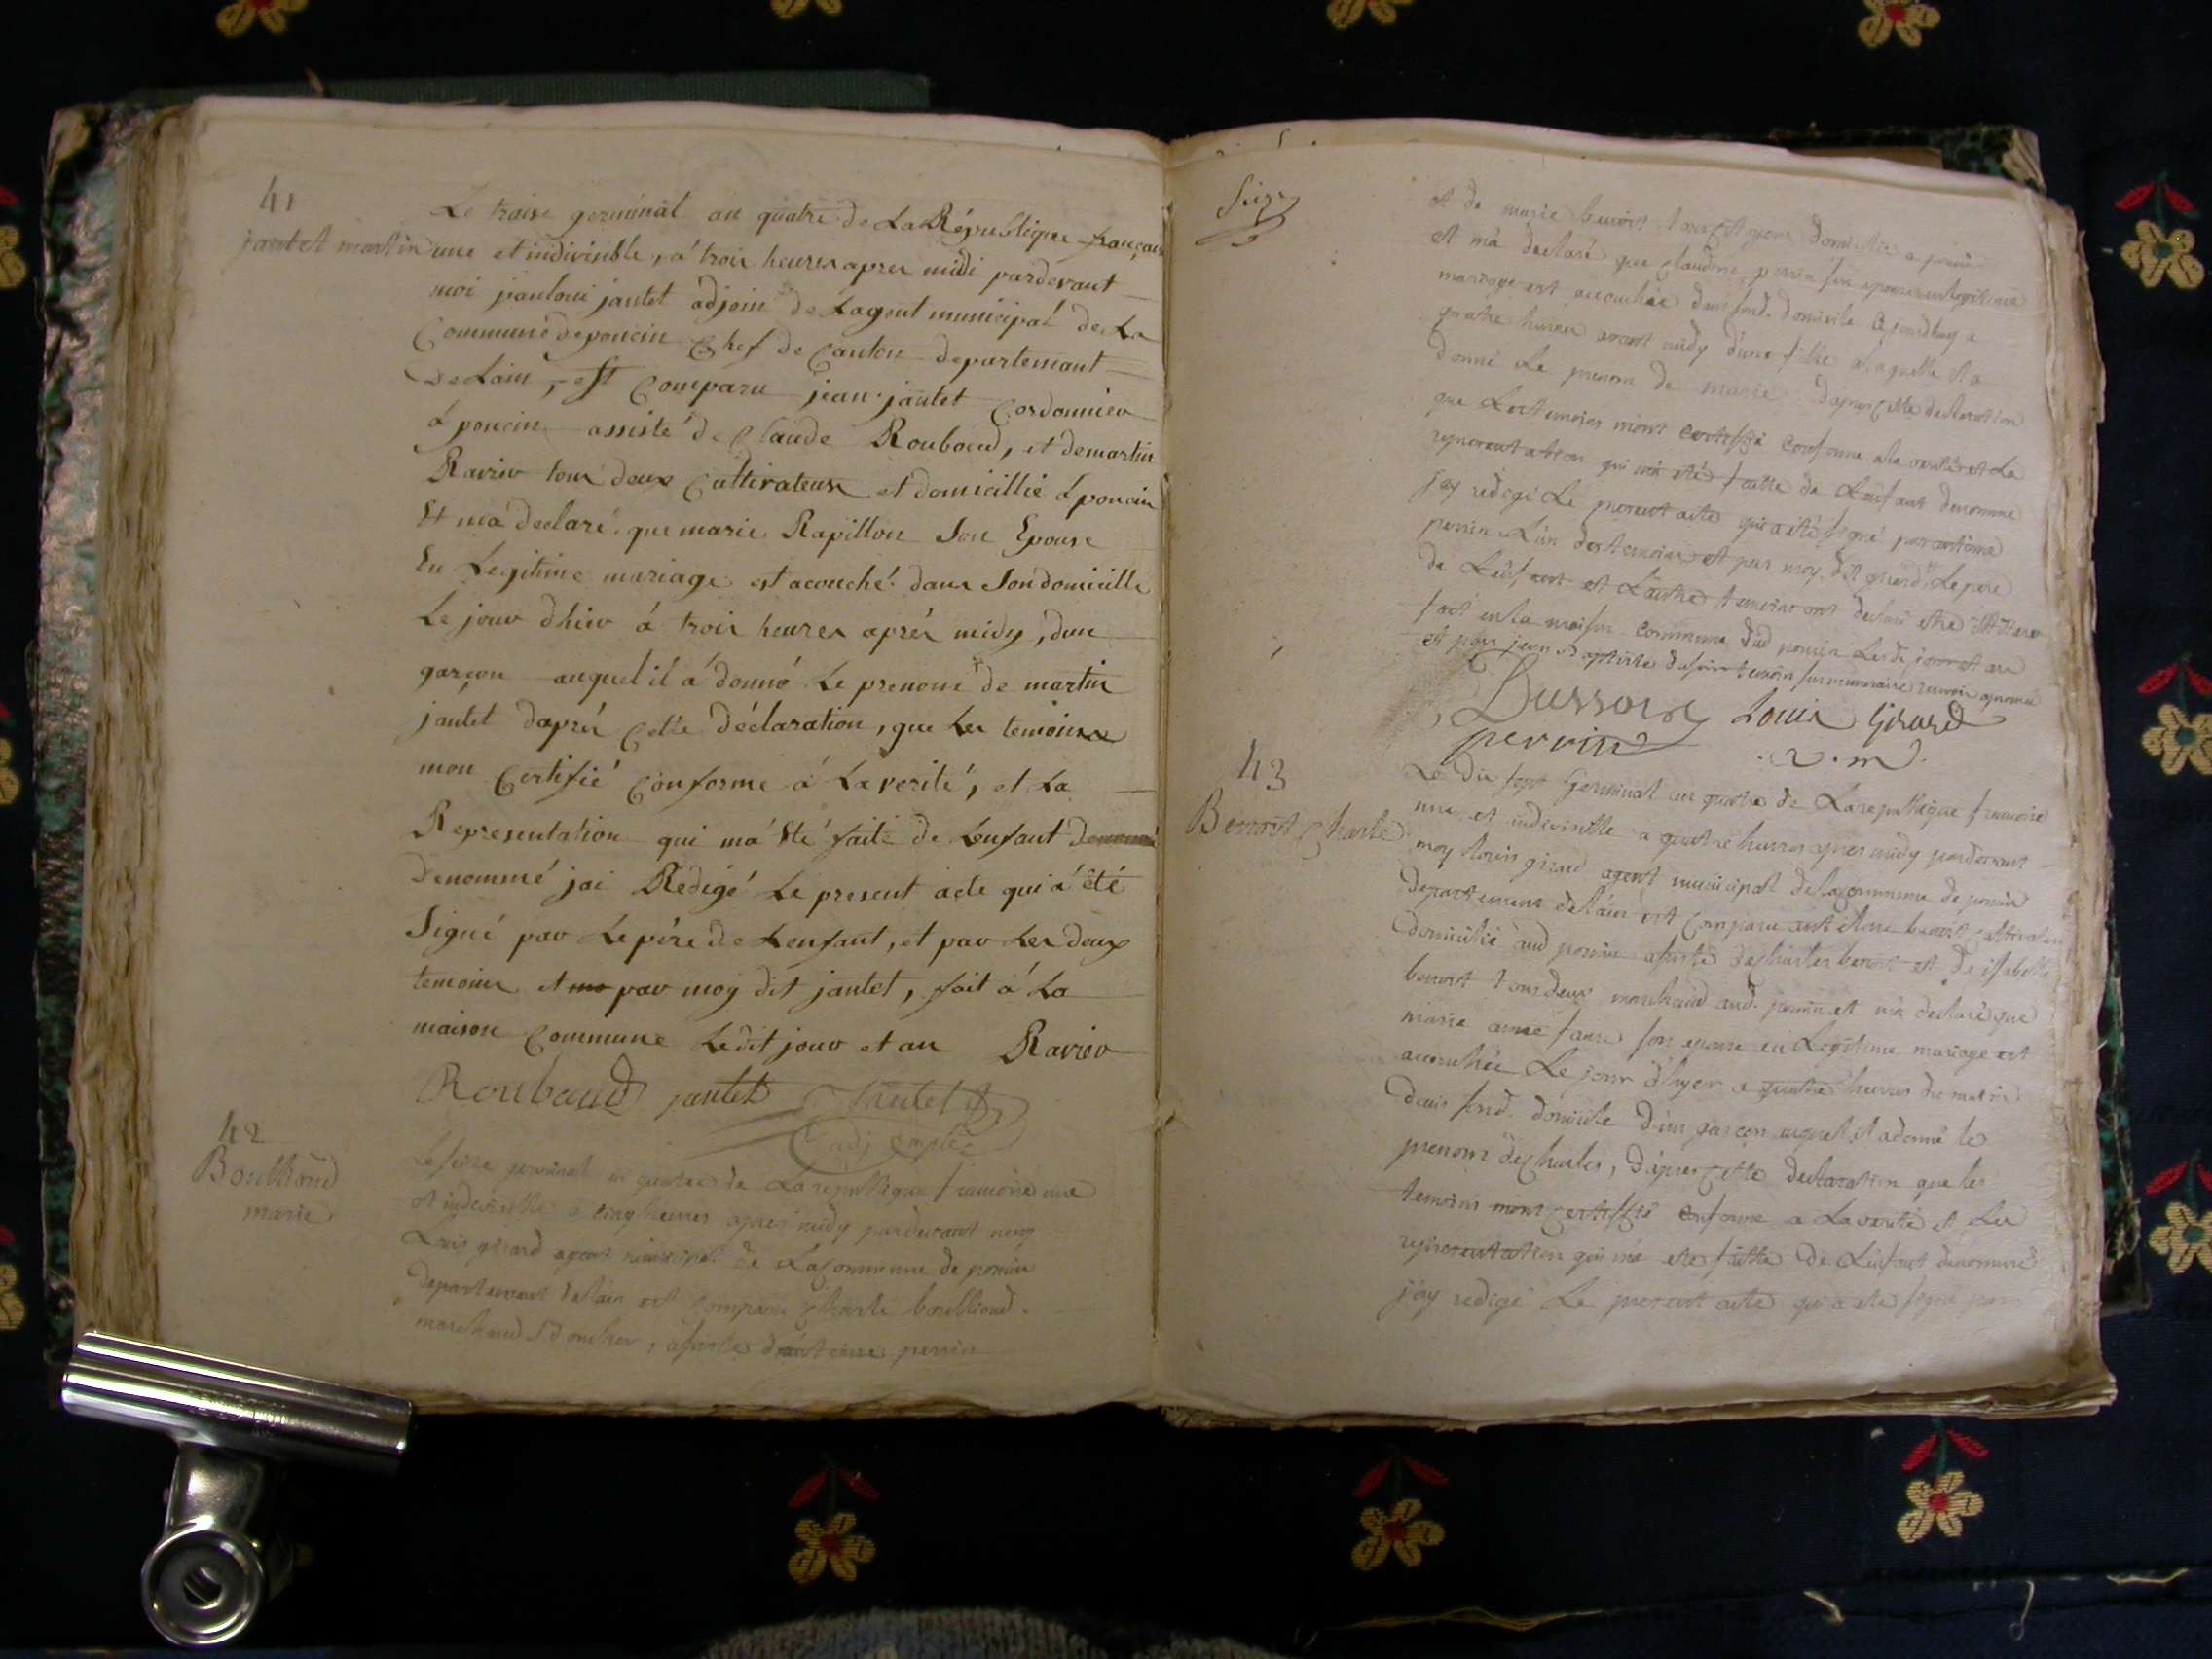 41
jantet martin
Le traise germinal an quatre de La République français
une et indivisible, á trois heures apres midi pardevant
moi jeanlouis jantet adjoin de Lagent municipal de La
Commune deponcin Chef de Canton departemant
DeLain, est Comparu jean jantet Cordonnier
á poncin assisté de Claude Rouboud, et demartin
Ravier tous deux Cultivateurs et domicillié á poncin
Et ma declaré que marie Rapillon Son Epouse
En Legitime mariage est acouché dans Son domicille
Le jour dhier á trois heures aprés midy, dun
garçon auquel il á donné Le prenom de martin
jantet daprés Cette déclaration, que les temoins
mon Certifié Conforme á La verité, et La
Representation qui má été faite de Lenfant
Denommé jai Redigé Le present acte qui á été
Signé par Le pére de Lenfant, et par Les deux
temoins et par moy dit jantet, fait á La
maison Commune Ledit jour et an Ravier
Rouboud jantet Jantet
adj
42
Boullioud
marie
Le seize germinal an quatre de La republique francoise une
et indivisible a cinq heures apres midy pardevant moy
Louis girard agent municipal de La Commune de poncin
Departement de lain est Comparu Charle boullioud
marchand, assistes dantoine perrin
Seize
et de marie benoit tous Citoyens domicilies a poncin
et má declaré que Claudine perrin son epouse en legitime
mariage est accouchée dans son d. domicile
quatre heures avant midy dune fille a laquelle il a
donné Le prenom de marie dapres Cette declaration
que Les temoins mont Certiffié Conforme a la verité et La
representation qui má eté faitte de Lenfant denomme
jay redigé Le present acte qui a été signé par antoine
perrin Lun des temoins et par moy dit girard, Le pere
de Lenfant et Lautre temoins ont declaré etre illiteré
fait en la maison Commune dud poncin Lesdi jour et an
et par jean baptiste temoin
Dussoire Louis Girard
perrin .a.m.
43
Benoit Charle
Le dix sept Germinal an quatre de La republique francoise
une et indivisible a quatre heures apres midy pardevant
moy Louis girard agent municipal de la Commune de poncin
Departement de láin est Comparu benoit Cultivateur
domicilié aud poncin assisté de Charles benoit et de isabelle
benoit tous deux marchand aud. poncin et má declaré que
marie anne son epouse en Legitime mariage est
accouchée Le jour dhyer a quatre heures du matin
dans son d. domicile dun garcon auquel il a donné le
prenom de Charles, dapres Cette declaration que les
temoins mont Certiffié Conforme a La verité et La
representation qui má eté faitte de Lenfant denommé
jáy redigé Le present acte qui a eté signé par